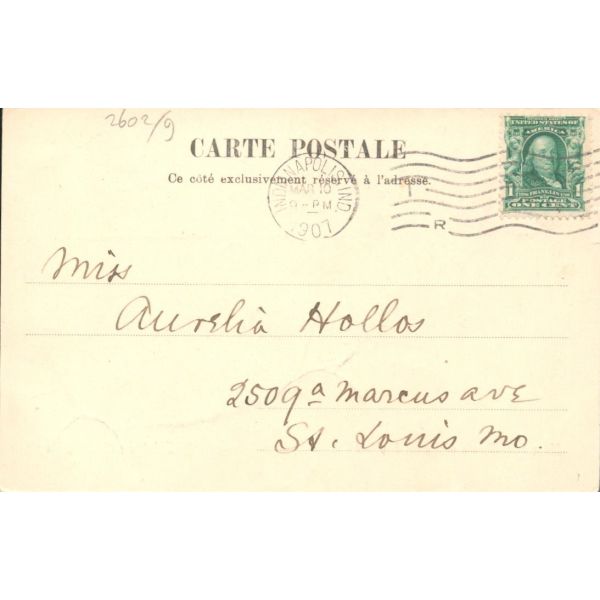 2602/9
CARTE POSTALE
Ce côté exclusivement réservé à l'adresse.
INDIANAPOLIS, IND.
MAR
9-PM
1907
R
UNITED STATES OF
AMERICA
1 FRANKLIN 1
POSTAGE
ONE CENT
Miss
Aurelia Hollos
2509a Marcus ave
St. Louis Mo.